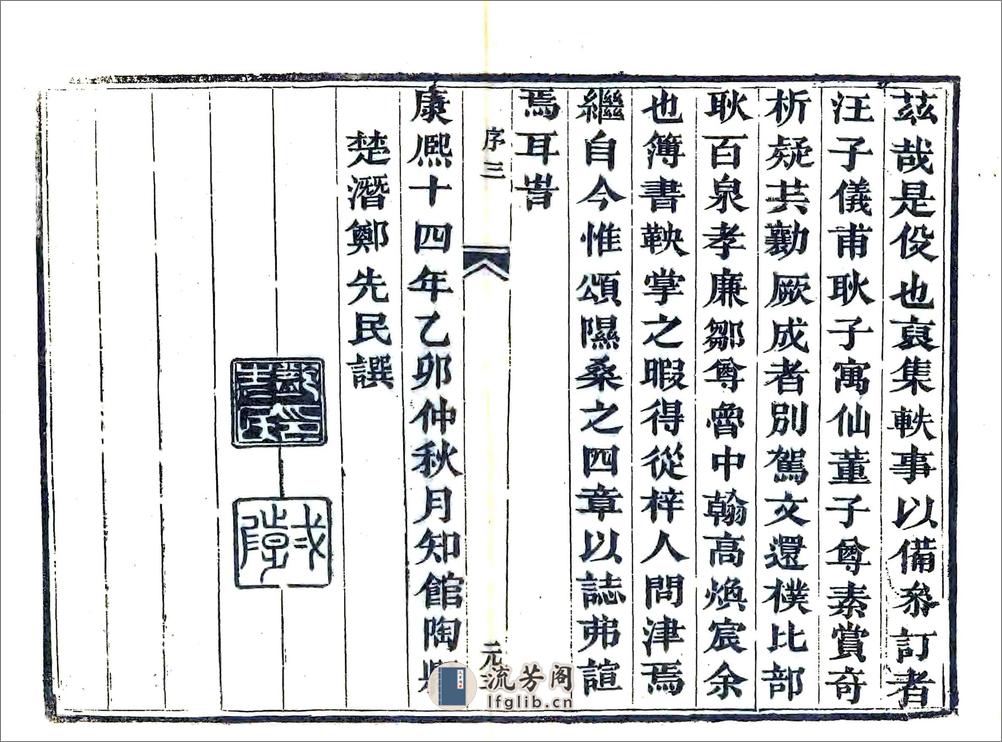 茲哉是役也裒集軼事以備叅訂者
汪子儀甫耿子寓仙董子尊素賞奇
析疑共勷厥成者別駕文還樸比部
耿百泉孝廉鄒尊魯中翰高煥宸余
也簿書鞅掌之暇得從梓人問津焉
繼自今惟頌隰桑之四章以誌弗諠
焉耳旹
序三
元
康熈十四年乙卯仲秋月知館陶縣
楚潛鄭先民譔
流芳阁
lfglib.cn